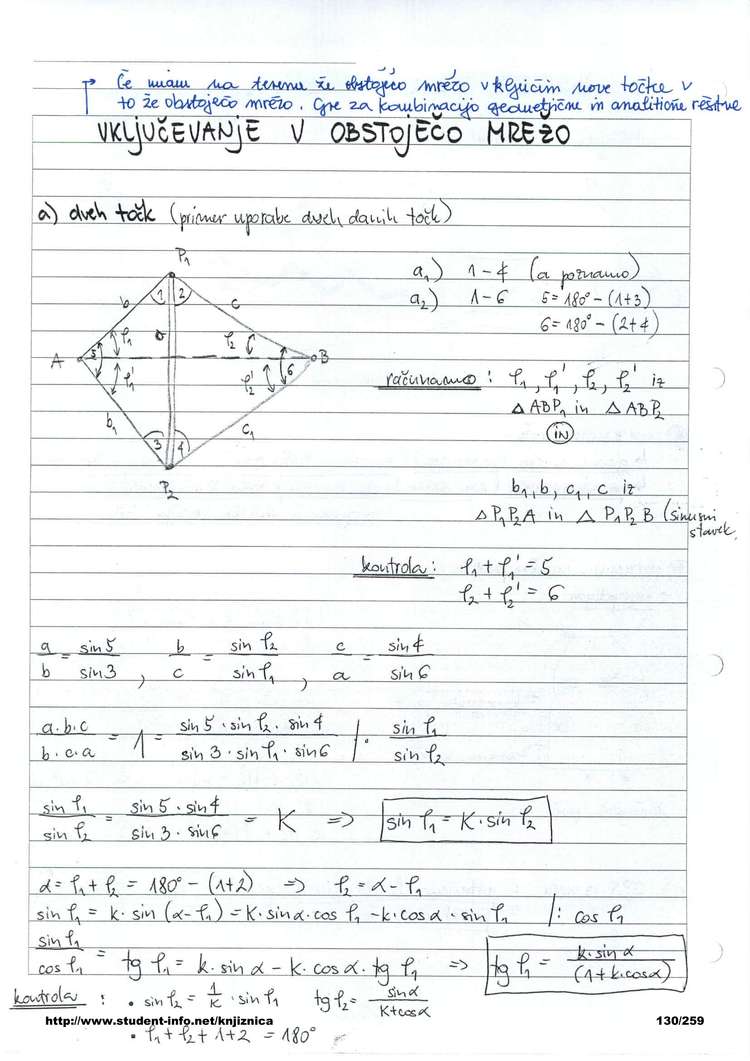 Če imam na terenu že obstoječo mrežo vključim nove točke v
to že obstoječo mrežo. Gre za kombinacijo geometrične in analitične rešitve
VKLJUČEVANJE V OBSTOJEČO MREŽO
a) dveh točk (primer uporabe dveh danih točk)
P₁
1 2
b c
φ₁ φ₂
A 5 B
φ₁' φ₂' 6
b₁ c₁
3 4
P₂
a₁) 1-4 (a poznamo)
a₂) 1-6 5=180°-(1+3)
6=180°-(2+4)
računamo: φ₁, φ₁', φ₂, φ₂' iz
△ABP₁ in △ABP₂
in
b₁, b, c₁, c iz
△P₁P₂A in △P₁P₂B (sinusni
stavek
kontrola: φ₁+φ₁'=5
φ₂+φ₂'=6
a/b = sin5/sin3, b/c = sin φ₂/sin φ₁, c/a = sin4/sin6
a.b.c/b.c.a = 1 = sin5·sin φ₂·sin4/sin3·sin φ₁·sin6 /· sin φ₁/sin φ₂
sin φ₁/sin φ₂ = sin5·sin4/sin3·sin6 = K => sin φ₁=K·sin φ₂
α=φ₁+φ₂=180°-(1+2) => φ₂=α-φ₁
sin φ₁=k·sin(α-φ₁)=K·sinα·cos φ₁-k·cosα·sin φ₁ /: cos φ₁
sin φ₁/cos φ₁ = tg φ₁=k·sin α-K·cosα·tg φ₁ => tg φ₁ = k·sin α/(1+k·cosα)
kontrola: • sin φ₂=1/K·sin φ₁ tg φ₂=sinα/K+cosα
http://www.student-info.net/knjiznica 130/259
• φ₁+φ₂+1+2=180°